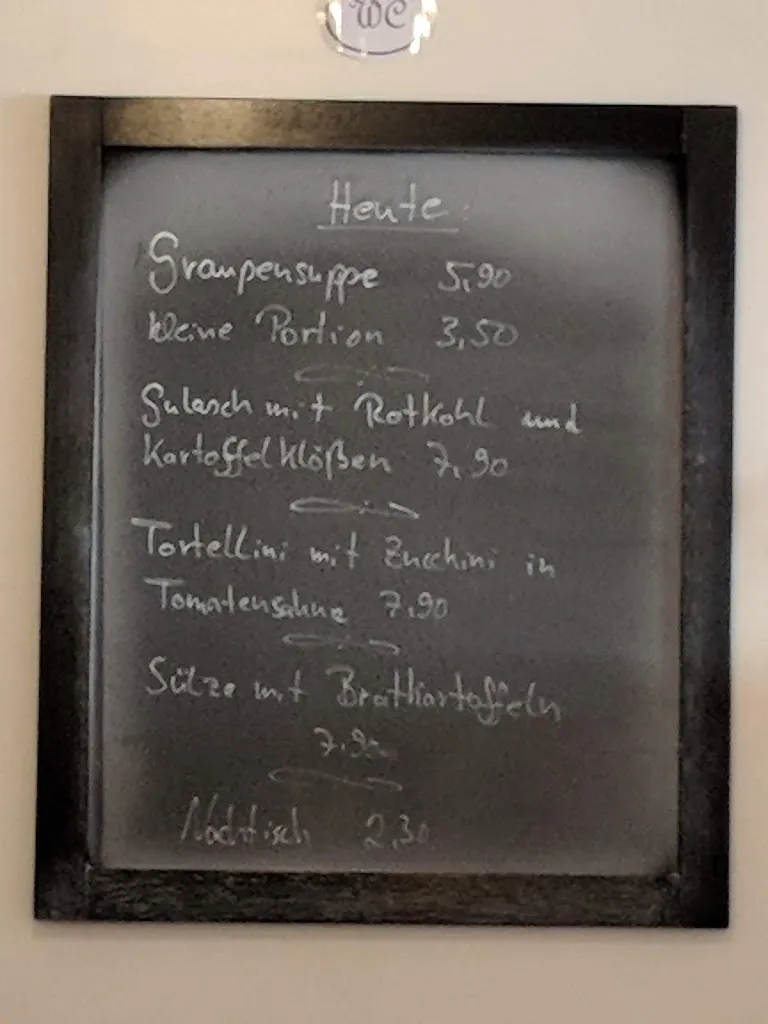 WC
Heute:
Graupensuppe 5,90
kleine Portion 3,50
Gulasch mit Rotkohl und
Kartoffelklößen 7,90
Tortellini mit Zucchini in
Tomatensahne 7,90
Sülze mit Bratkartoffeln
7,90
Nachtisch 2,30